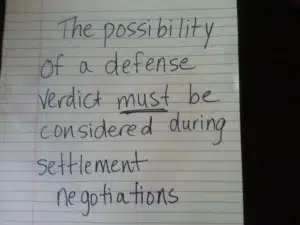 The possibility
of a defense
verdict must be
considered during
settlement
negotiations